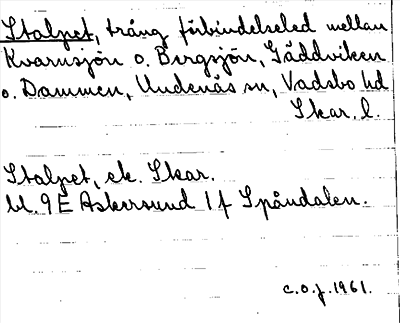 Stalpet, trång förbindelseled mellan
Kvarnsjön o. Borgsjön, Gäddviken
o. Dammen, Undenäs sn, Vadsbo hd
Skar. l.
Stalpet, ek. Skar.
bl. 9E Askersund 1f Spåndalen.
c.o.f. 1961.